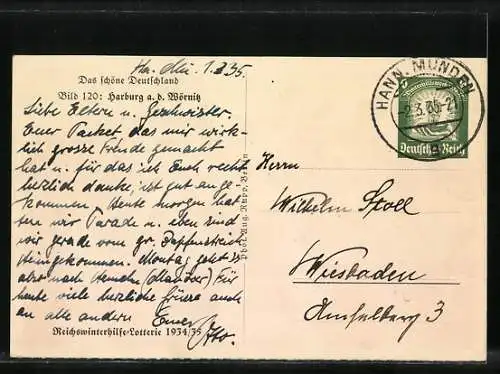 Ha. Mü. 1.3.35.
Das schöne Deutschland
Bild 120: Harburg a. d. Wörnitz
Liebe Eltern u. Geschwister.
Euer Packet das mir wirk-
lich grosse Freude gemacht
hat u. für das ich Euch recht
herzlich danke, ist gut ange-
kommen. Heute morgen hat-
ten wir Parade u. eben sind
wir gerade vom gr. Zapfenstreich
Heimgekommen. Montag geht es
also nach (Manöver) Für
heute viele herzliche Grüsse auch
an alle andern Euer
Otto.
Reichswinterhilfe-Lotterie 1934/35
Phot. Aug. Rupp, Berlin
HANN. MÜNDEN
2.3.35
Deutsches Reich
Herrn
Wilhelm Stoll
Wiesbaden
Amselberg 3